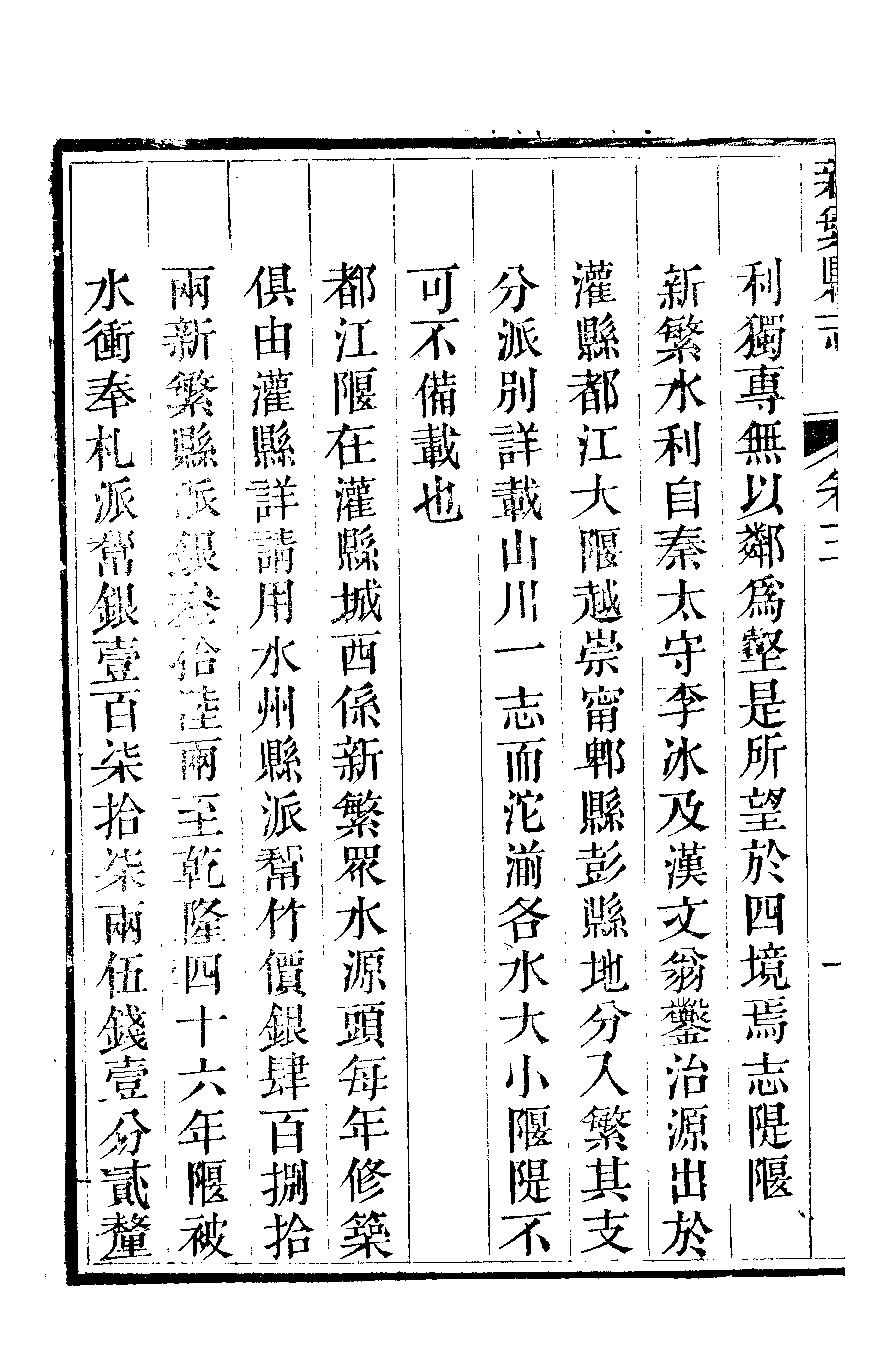 新繁縣志 卷三 一
利獨專無以鄰爲壑是所望於四境焉志隄堰
新繁水利自秦太守李冰及漢文翁鑿治源出於
灌縣都江大堰越崇甯郫縣彭縣地分入繁其支
分派別詳載山川一志而沱湔各水大小堰隄不
可不備載也
都江堰在灌縣城西係新繁眾水源頭每年修築
俱由灌縣詳請用水州縣派幫竹價銀肆百捌拾
兩新繁縣派銀叄拾陸兩至乾隆四十六年堰被
水衝奉札派幫銀壹百柒拾柒兩伍錢壹分貳釐